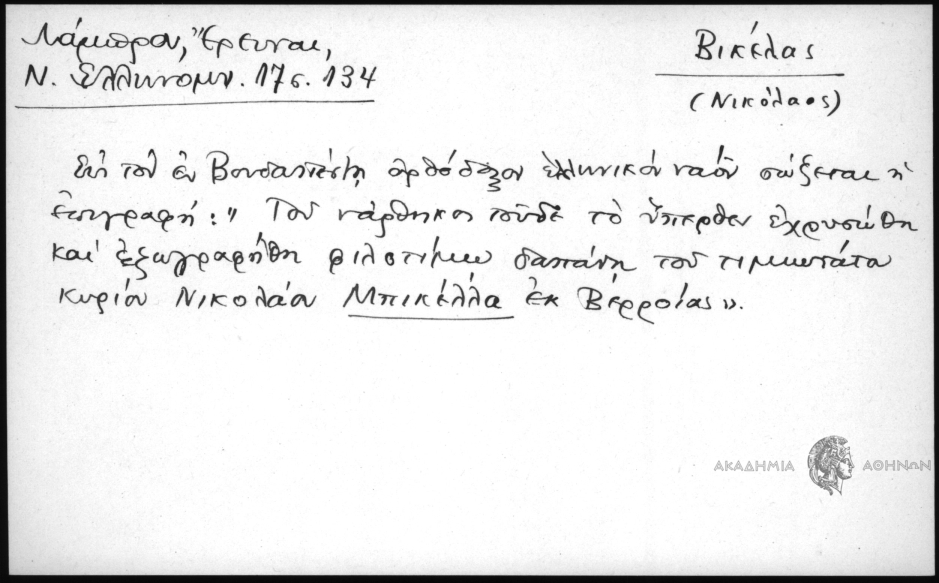 Λάμπρου, Ἔρευναι,
Ν. Ἑλληνομν. 17 σ. 134
Βικέλας
(Νικόλαος)
Εἰς τὸν ἐν Βουδαπέστῃ ὀρθόδοξον ἑλληνικὸν ναὸν σῴζεται ἡ
ἐπιγραφή: " Τοῦ νάρθηκος τοῦδε τὸ ὕπερθεν ἐχρυσώθη
καὶ ἐζωγραφήθη φιλοτίμῳ δαπάνῃ τοῦ τιμιωτάτου
κυρίου Νικολάου Μπικέλλα ἐκ Βερροίας».
ΑΚΑΔΗΜΙΑ ΑΘΗΝΩΝ